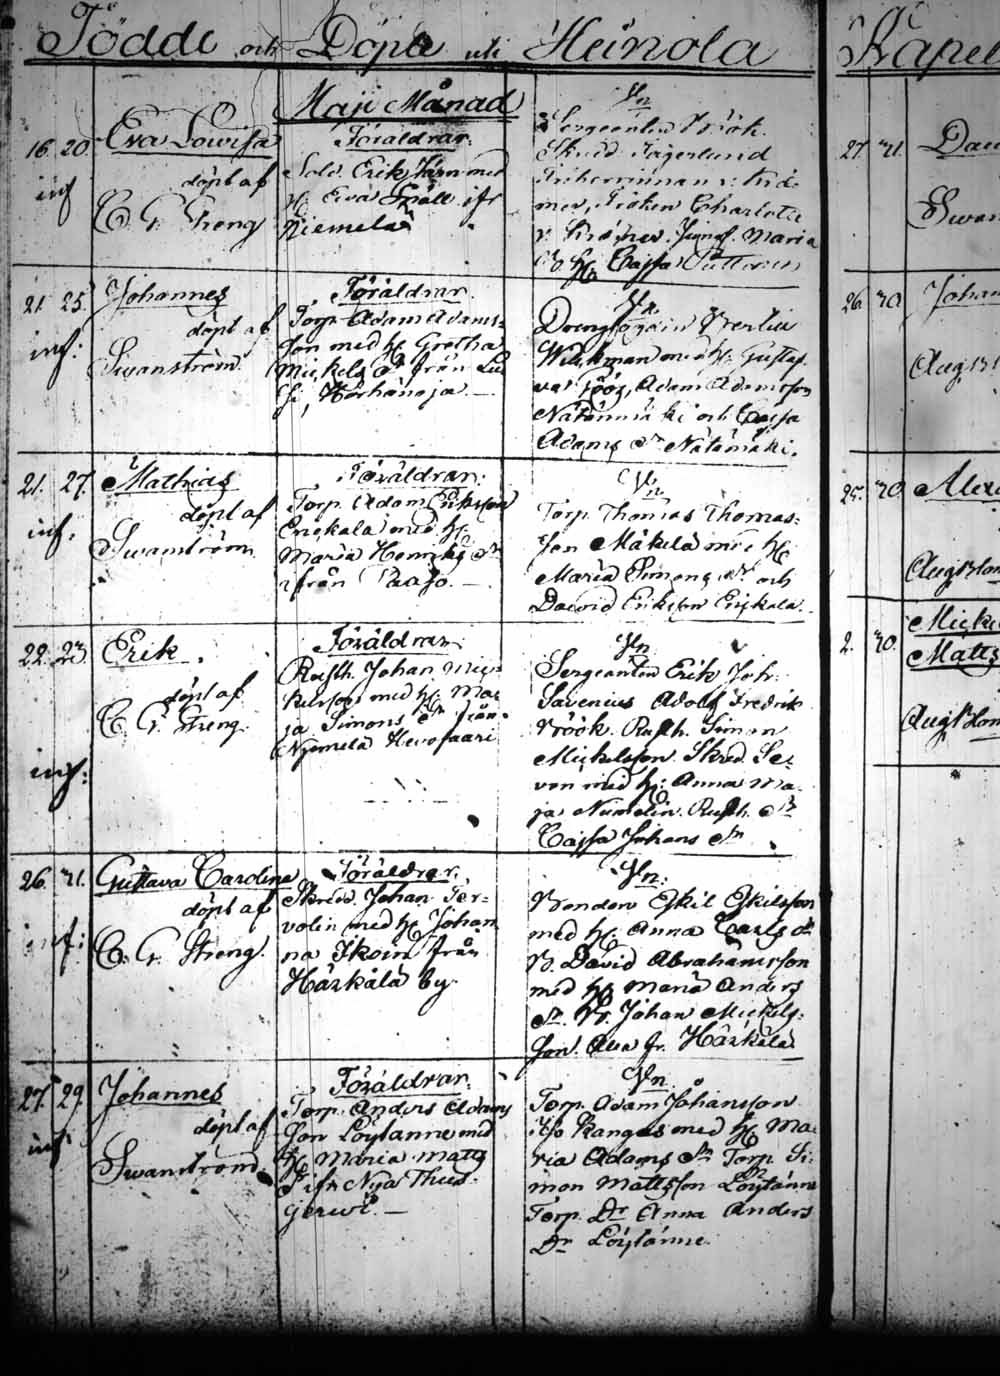 Födde och Döpte uti Heinola
Kapel
Maji Månad
16. 20. Eva Lowisa
inf
döpt af
C. G. Streng
Föräldrar.
Sold. Erik Järn med
H. Eva Spåll ifr
Niemelä
Fn
Sergeanten Röök.
Skred. Fägerlund
mer, Fröken Charlotta
Jungf. Maria
H. Cajsa
21. 25. Johannes
inf:
döpt af
Swanström.
Föräldrar.
Torp. Adam Adams:
son med H. Gretha
Mickels dr från Lu
si, Horhanoja.
Fn
Wilckman med H. Gustaf
va Föög, Adam Adamsson
Nätämmäki och Cajsa
Adams dr Nätämäki.
21. 27. Mathias
inf.
döpt af
Swanström.
Föräldrar.
Torp. Adam Eriksson
Erickala med H:
Maria Henriks dr
ifrån Paaso.
Fn
Torp. Thomas Thomas:
son Mäkelä med H.
Maria Simons dr och
David Eriksson Erickala.
22. 23. Erik.
inf:
döpt af
C. G. Streng.
Föräldrar
Rusth. Johan Mic
kelsson med H. Ma
ja Simons dr från
Nyemelä Hevosaari
Fn
Sergeanten Erik Joh.
Savenius Adolf Fredrik
Röök. Rusth. Simon
Mickelsson. Skred. Se:
ven med H: Anna Ma
ja Numelin. Rusth. dr
Cajsa Johans dr
26. 31. Gustava Carolina
inf:
döpt af
C. G. Streng.
Föräldrar.
Skredd. Johan Ter:
volin med H. Johan
na Ikoin från
Härkälä by.
Fn:
Bonden Eskil Eskilsson
med H. Anna Carls dr
B. David Abrahamsson
med H. Maria Anders
dr. Johan Mickels:
son. Alla fr. Härkälä
27. 29. Johannes
inf
döpt af
Swanström.
Föräldrar.
Torp. Anders Adams
son Löytänne med
H. Maria Matts
dr ifr. Nya Thus.
gerwi.
Fn.
Torp. Adam Johansson
Iso Kangas med H. Ma
ria Adams dr Torp. Si:
mon Mattsson Löytänne
Torp. Dr Anna Anders
Dr Löytänne.
27. 31.
Swan
26. 30. Johan
25. 30. Alex
2. 30. Micke
Matts